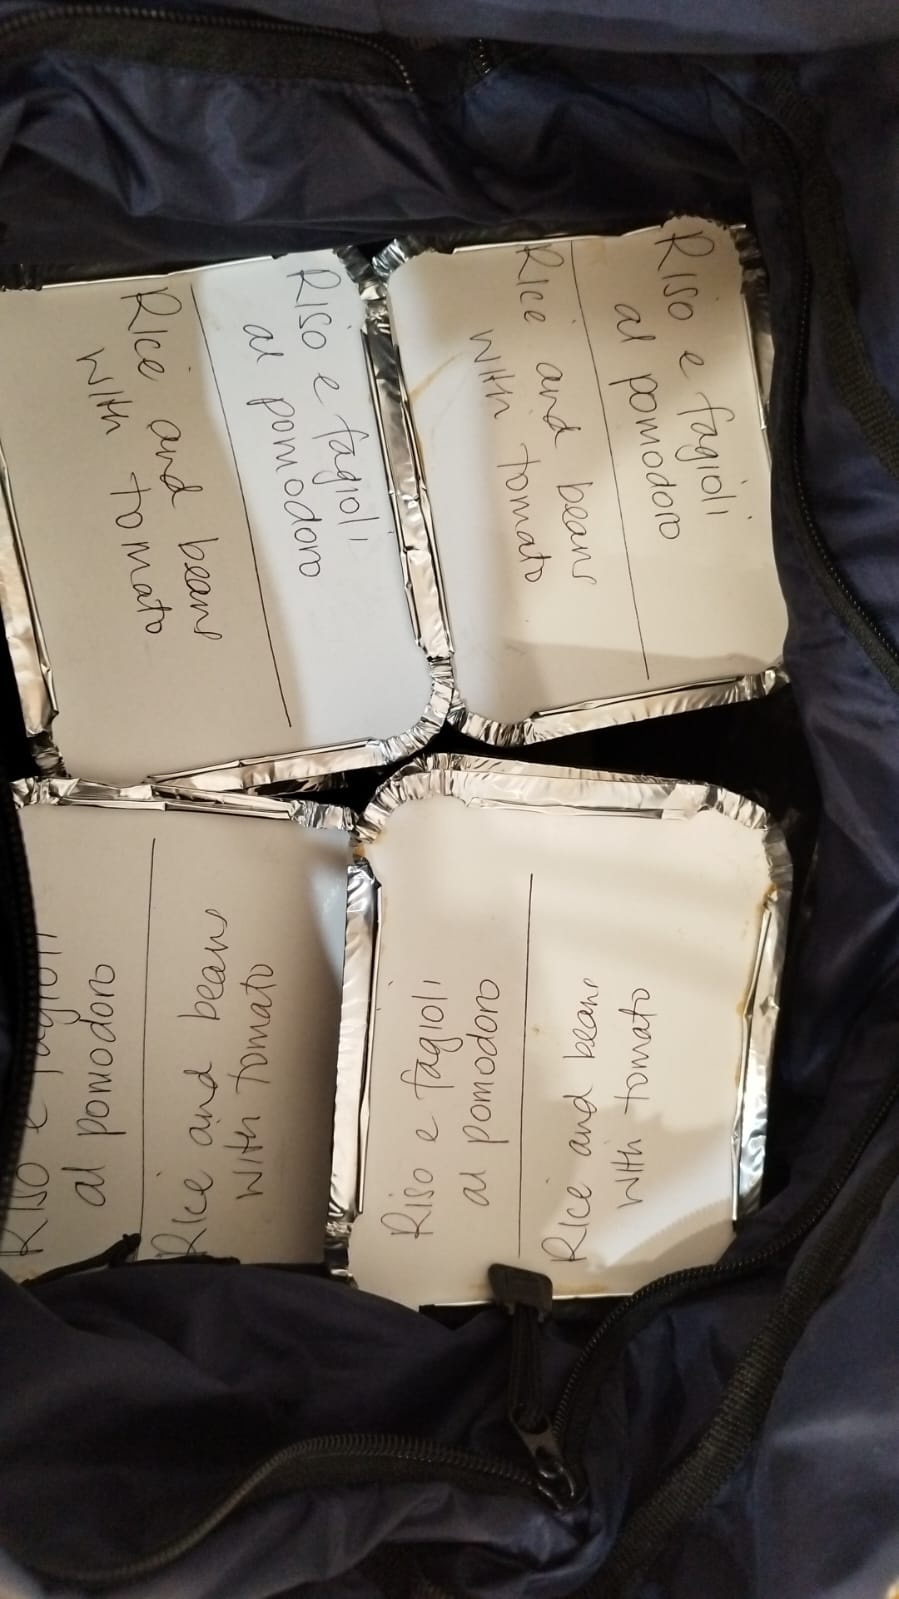 Riso e fagioli
al pomodoro
Rice and beans
with tomato
Riso e fagioli
al pomodoro
Rice and beans
with tomato
Riso e fagioli
al pomodoro
Rice and beans
with tomato
Riso e fagioli
al pomodoro
Rice and beans
with tomato